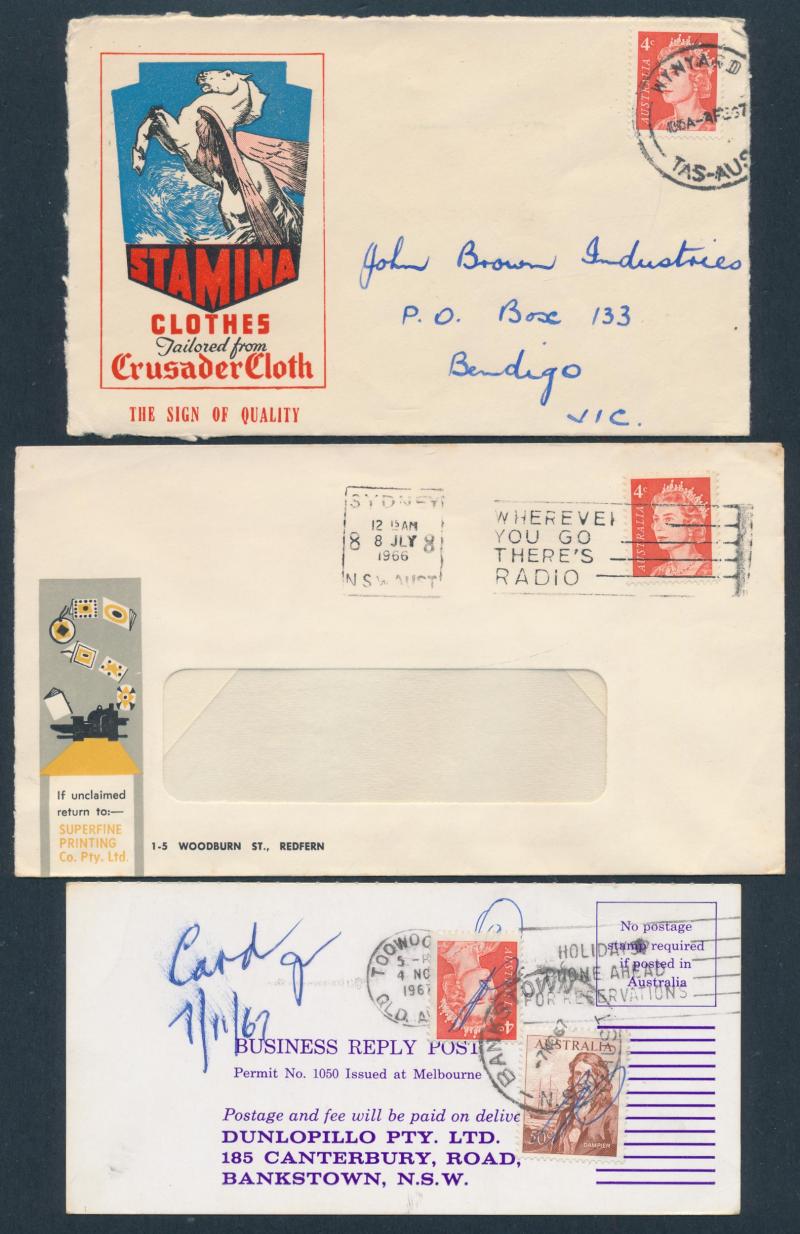 4c
AUSTRALIA
WYNYARD
TAS-AUS
STAMINA
CLOTHES
Tailored from
Crusader Cloth
THE SIGN OF QUALITY
John Brown Industries
P.O. Box 133
Bendigo
VIC.
SYDNEY
12 15AM
8 8 JLY 8
1966
N.S.W. AUST
WHEREVE
YOU GO
THERE'S
RADIO
4c
AUSTRALIA
If unclaimed
return to:—
SUPERFINE
PRINTING
Co. Pty. Ltd.
1-5 WOODBURN ST., REDFERN
Card
7/11/67
TOOWOO
5 - P
4 NO
1967
QLD. A
4c
HOLIDAYS
PHONE AHEAD
FOR RESERVATIONS
No postage
stamp required
if posted in
Australia
BANKS
-7
67
N.S.
AUSTRALIA
50c
DAMPIER
BUSINESS REPLY POST
Permit No. 1050 Issued at Melbourne
Postage and fee will be paid on delive
DUNLOPILLO PTY. LTD.
185 CANTERBURY, ROAD,
BANKSTOWN, N.S.W.